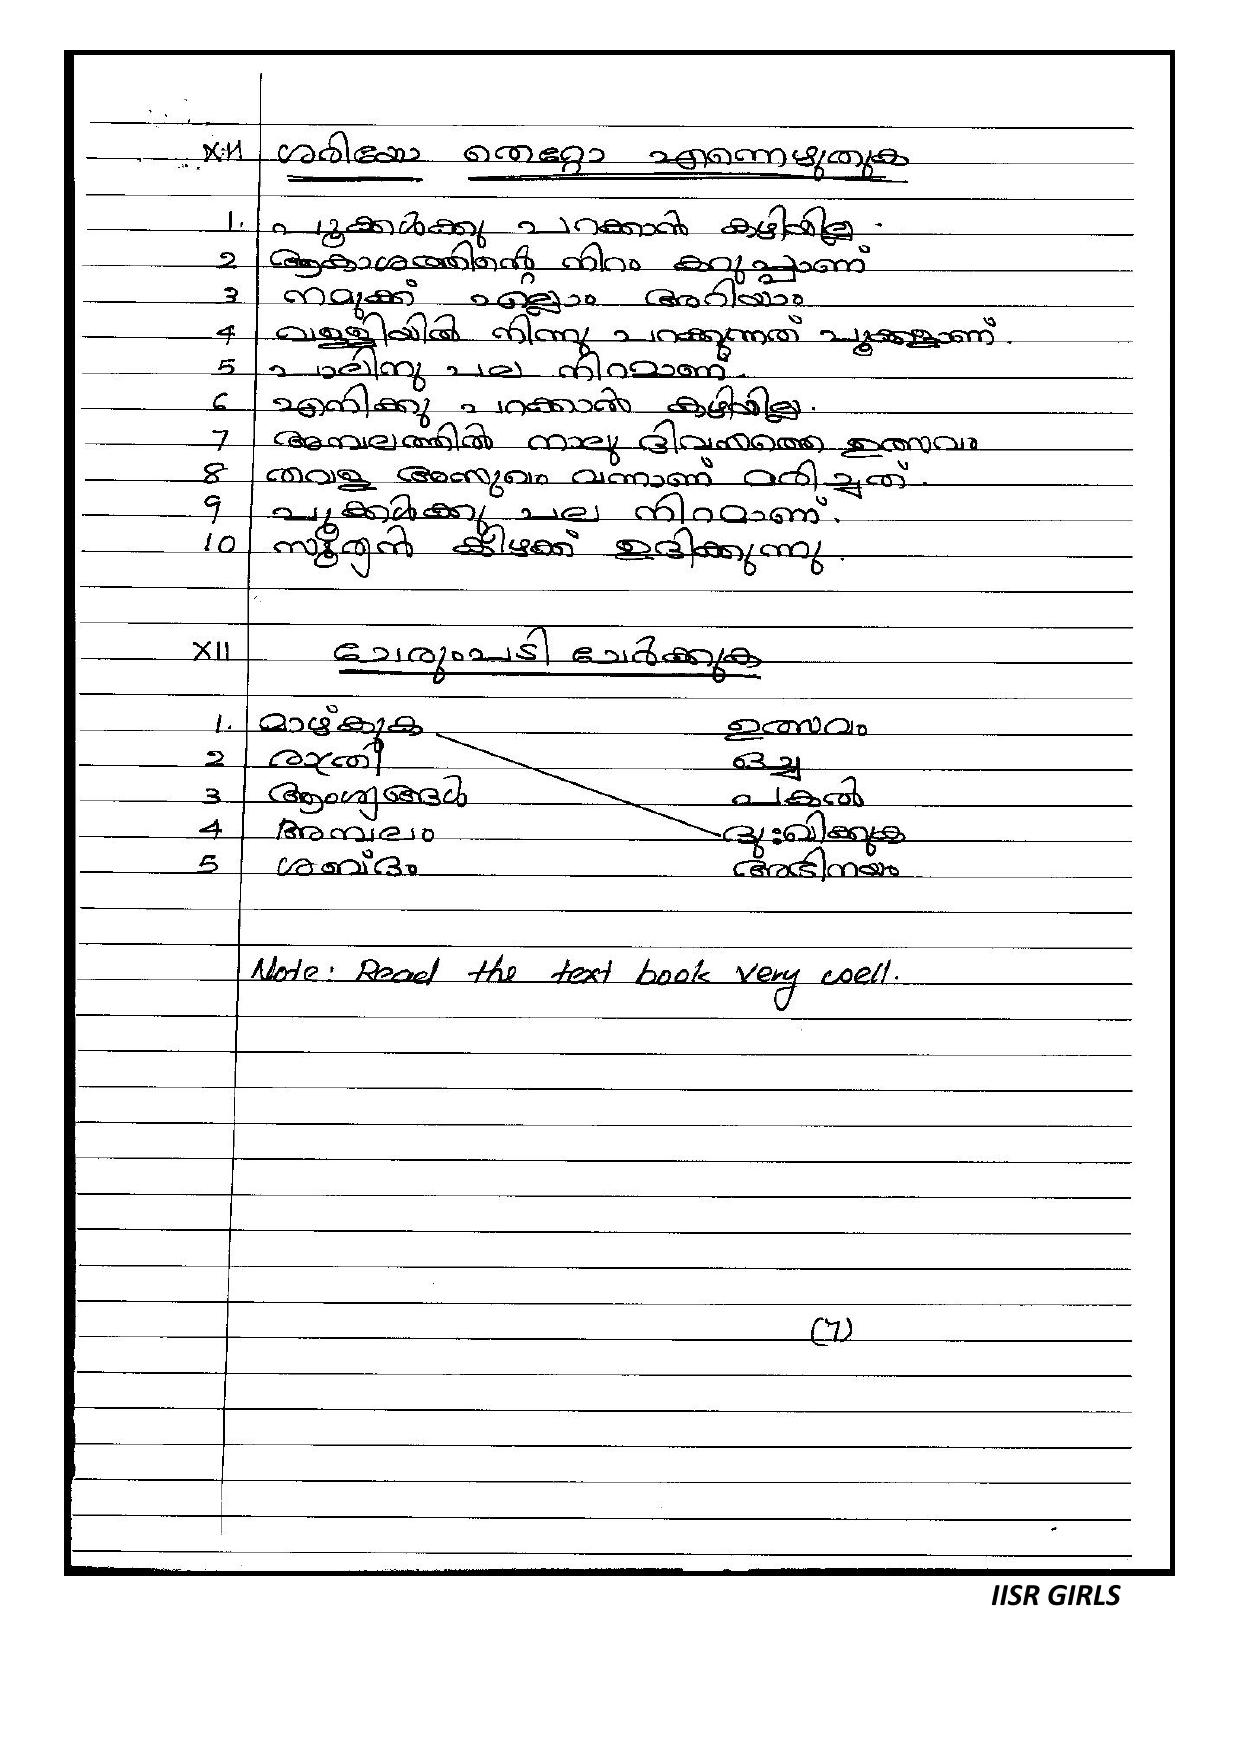 XII ശരിയോ തെറ്റോ എന്നെഴുതുക
1. പൂക്കൾക്കു പറക്കാൻ കഴിയില്ല.
2 ആകാശത്തിന്റെ നിറം കറുപ്പാണ്
3 നമുക്ക് എല്ലാം അറിയാം
4 വള്ളിയിൽ നിന്നു പറക്കുന്നത് പൂക്കളാണ്.
5 പാലിനു പല നിറമാണ്.
6 എനിക്കു പറക്കാൻ കഴിയില്ല.
7 അമ്പലത്തിൽ നാലു ദിവസത്തെ ഉത്സവം
8 തവള അസുഖം വന്നാണ് മരിച്ചത്.
9 പൂക്കൾക്കു പല നിറമാണ്.
10 സൂര്യൻ കിഴക്ക് ഉദിക്കുന്നു.
XII ചേരുംപടി ചേർക്കുക
1. മാഴ്കുക ഉത്സവം
2 രാത്രി ഒച്ച
3 ആംഗ്യങ്ങൾ പകൽ
4 അമ്പലം ദുഃഖിക്കുക
5 ശബ്ദം അഭിനയം
Note: Read the text book very well.
(7)
IISR GIRLS